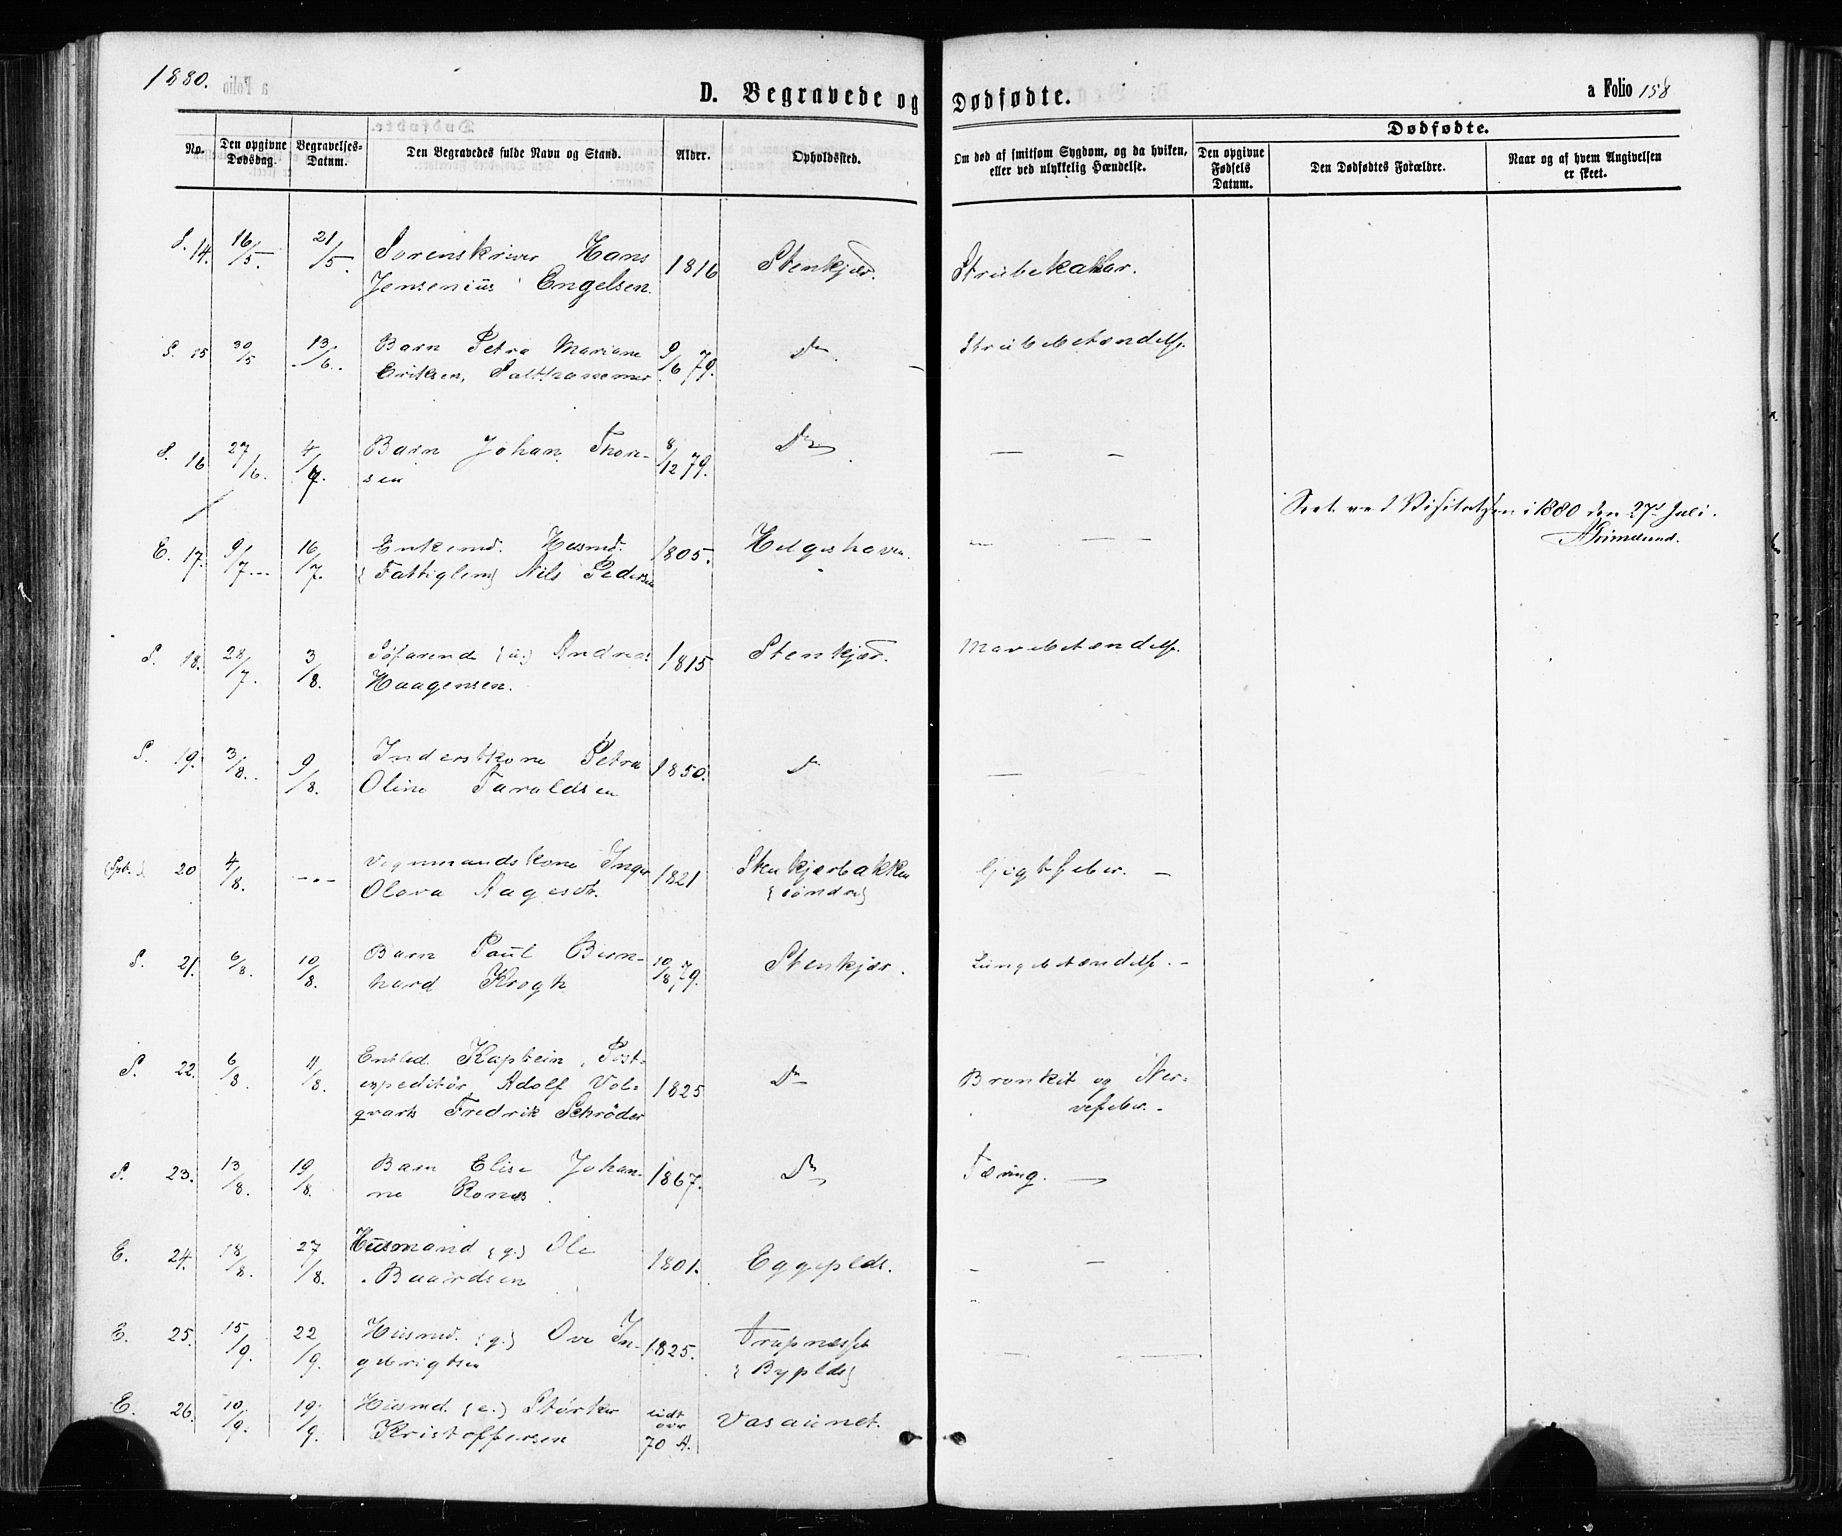 1880.
D. Begravede og Dødfødte.
a Folio 158
No.
Den opgivne Dødsdag.
Begravelses-Datum.
Den Begravedes fulde Navn og Stand.
Alder.
Opholdssted.
Om død af smitsom Sygdom, og da hviken, eller ved ulykkelig Hændelse.
Dødfødte.
Den opgivne Fødsels Datum.
Den Dødfødtes Forældre.
Naar og af hvem Angivelsen er skeet.
S. 14. 16/5. 21/5. Sorenskriver Hans 1816 Stenkjær. Strubekatar.
Jensenius Engelsen.
S. 15 30/5 13/6. Barn Petra Mariane 9/6 79. Do. Strubebetændelse.
Eriksen,
S. 16 27/6. 4/7. Barn Johan Thor- 8/12 79. Do. — —
sen
Seet ved Visitatsen i 1880 den 27de Juli.
Grimelund.
E. 17. 9/7. 16/7. Enkemd. Husmd. 1805. Helgeshaven. — — —
(Fattiglem) Nils Pedersen
S. 18. 28/7. 3/8. Søfarende (u.) Andreas 1815 Stenkjær. Mavebetændelse.
Haagensen.
S. 19. 3/8. 9/8. Inderstkone Petra 1850. Do — —
Oline Taraldsen
20 4/8. —"— Vognmandskone Inger 1821 Stenkjærbakken Gigtfeber. —
Olava Aagesdt. (søndre)
S. 21. 6/8. 10/8. Barn Paul Bern- 10/8 79. Stenkjær. Lungebetændelse. -
hard Krogh
S. 22. 6/8. 11/8. Entled. Kaptein, Post- 1825 Do Bronkit og Ner-
expeditør Adolf Vol- vefeber. -
qvarts Fredrik Schrøder
S. 23. 13/8. 19/8. Barn Elise Johan- 1867. Do Tæring. —
ne Rones
E. 24. 18/8. 27/8. Husmand (g.) Ole 1801. Eggeplds. - —
Baardsen
E. 25. 15/9. 22/9. Husmd. (g.) Ove In- 1825. Trapnesset — —
gebrigtsen (Byplds)
E. 26. 10/9. 19/9. Husmd. (e.) Størker lidt over 70 A. Vasaunet.
Kristoffersen